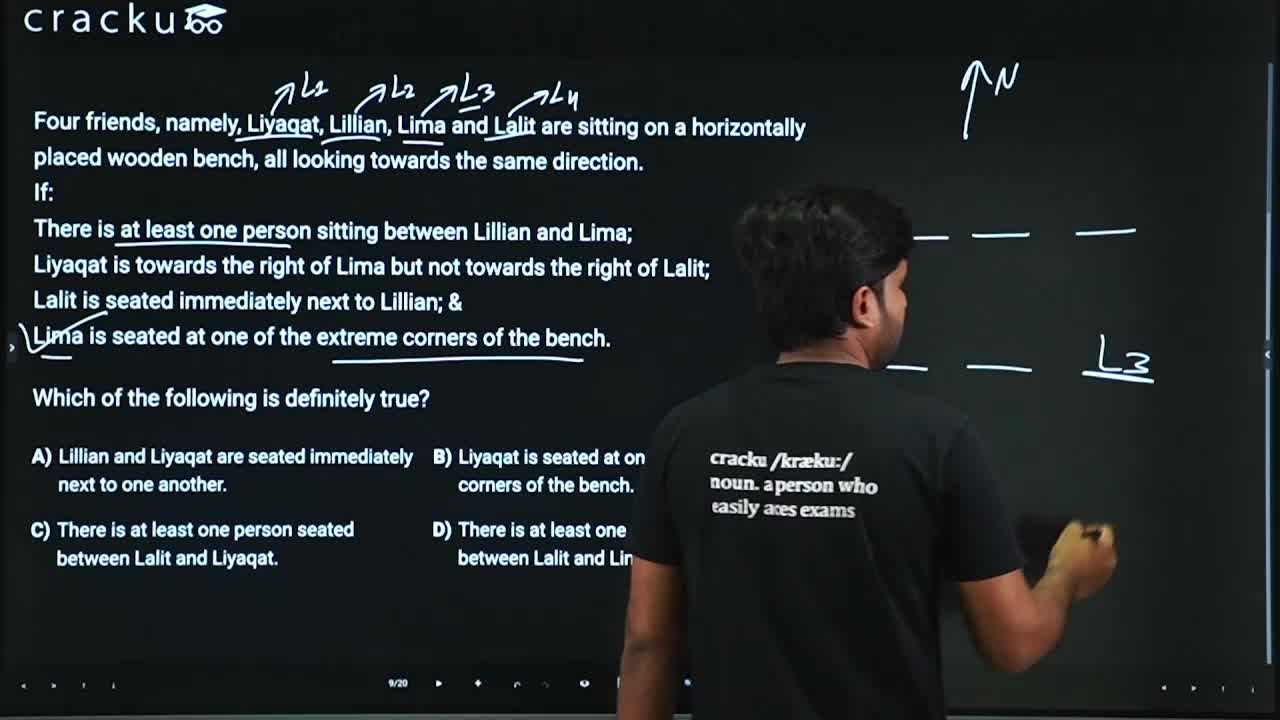 cracku
L1 L2 L3 L4
N
Four friends, namely, Liyaqat, Lillian, Lima and Lalit are sitting on a horizontally
placed wooden bench, all looking towards the same direction.
If:
There is at least one person sitting between Lillian and Lima;
Liyaqat is towards the right of Lima but not towards the right of Lalit;
Lalit is seated immediately next to Lillian; &
Lima is seated at one of the extreme corners of the bench.
L3
Which of the following is definitely true?
A) Lillian and Liyaqat are seated immediately
next to one another.
B) Liyaqat is seated at on
corners of the bench.
C) There is at least one person seated
between Lalit and Liyaqat.
D) There is at least one
between Lalit and Lim
cracku /kræku:/
noun. a person who
easily aces exams
9/20